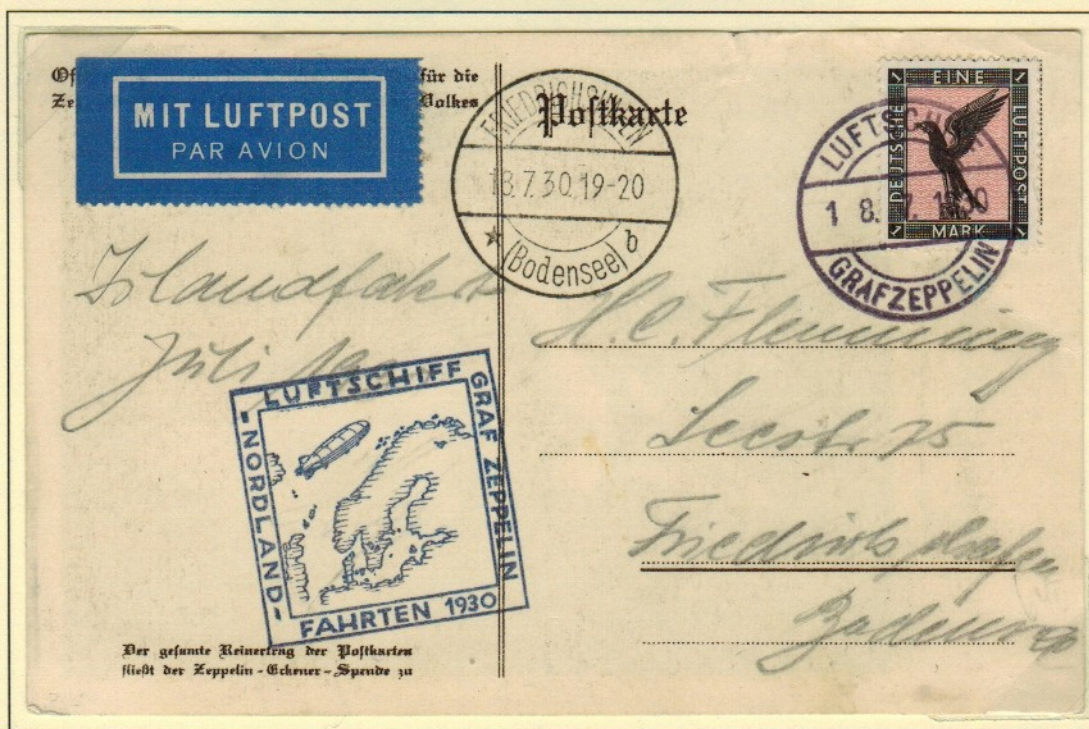 Of für die
Ze Volkes
MIT LUFTPOST
PAR AVION
Postkarte
FRIEDRICHSHAFEN
18.7.30.19-20
(Bodensee) b
EINE
DEUTSCHE
LUFTPOST
1 MARK 1
LUFTSCHIFF
1 8. 7. 1930
GRAF ZEPPELIN
Islandfahrt
Juli
H.C. Flemming
Seestr. 75
Friedrichshafen
LUFTSCHIFF
GRAF ZEPPELIN
-NORDLAND-
FAHRTEN 1930
Der gesamte Reinertrag der Postkarten
fließt der Zeppelin-Eckener-Spende zu